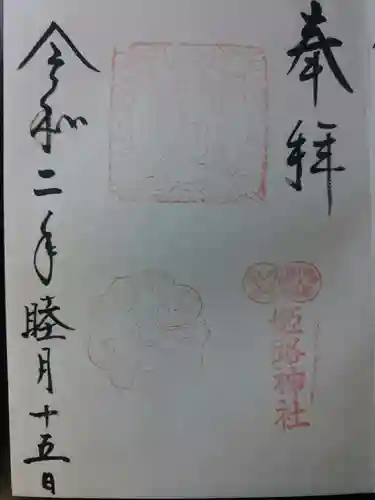 奉拝
姫路神社
令和二年睦月十五日